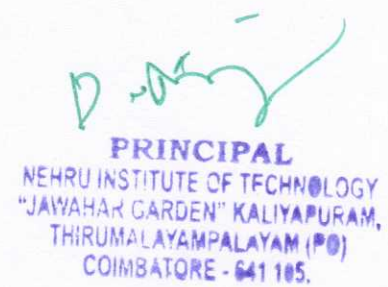 PRINCIPAL
NEHRU INSTITUTE OF TECHNOLOGY
"JAWAHAR GARDEN" KALIYAPURAM,
THIRUMALAYAMPALAYAM (PO)
COIMBATORE - 641 105.